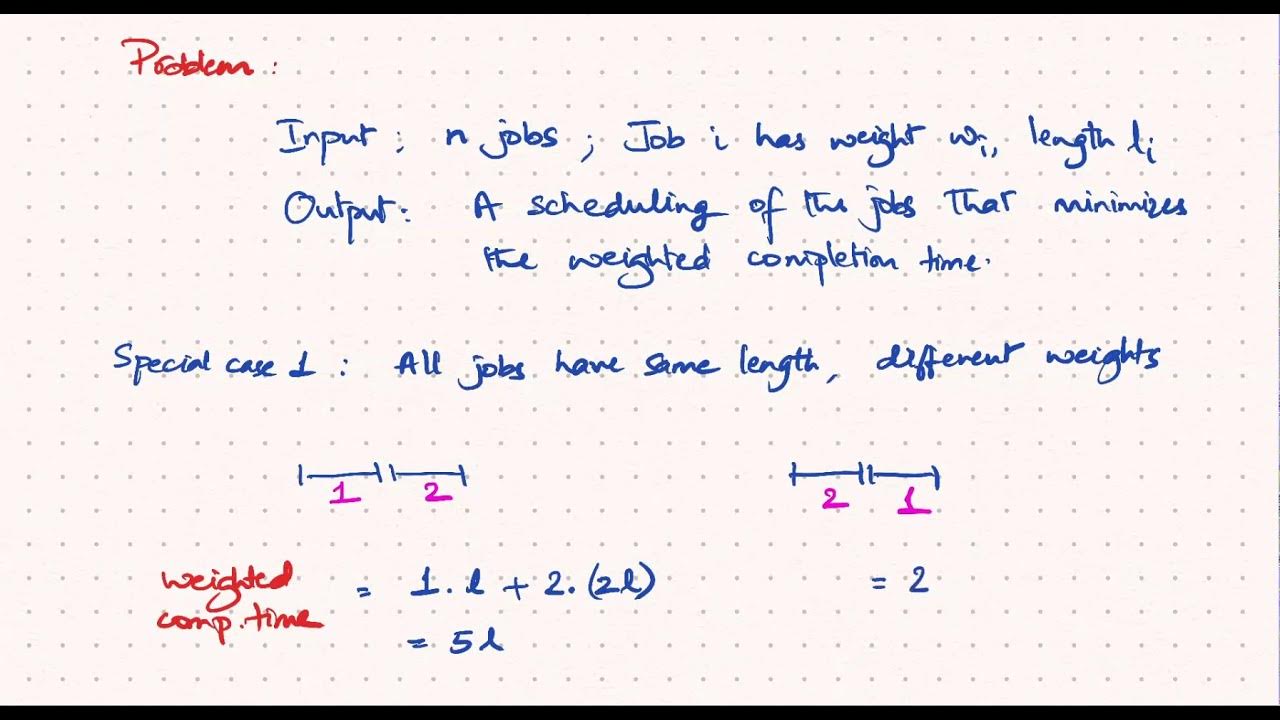 Problem :
Input : n jobs ; Job i has weight wᵢ, length lᵢ
Output : A scheduling of the jobs that minimizes
the weighted completion time.
Special case 1 : All jobs have same length, different weights
1 2 2 1
weighted comp. time = 1. l + 2. (2l) = 2
= 5l